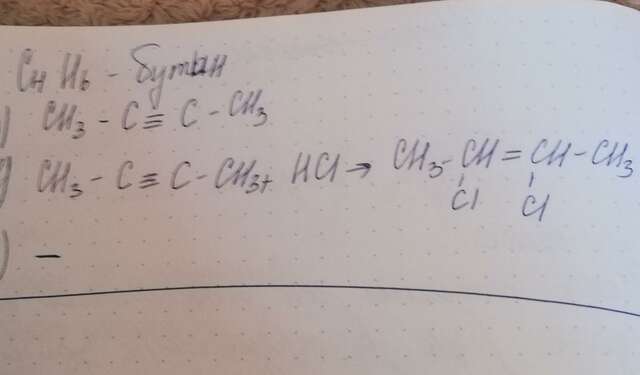 C4 H6 - Бутин
) CH3 - C ≡ C - CH3
) CH3 - C ≡ C - CH3 + HCl → CH3 - CH = CH - CH3
Cl Cl
) —